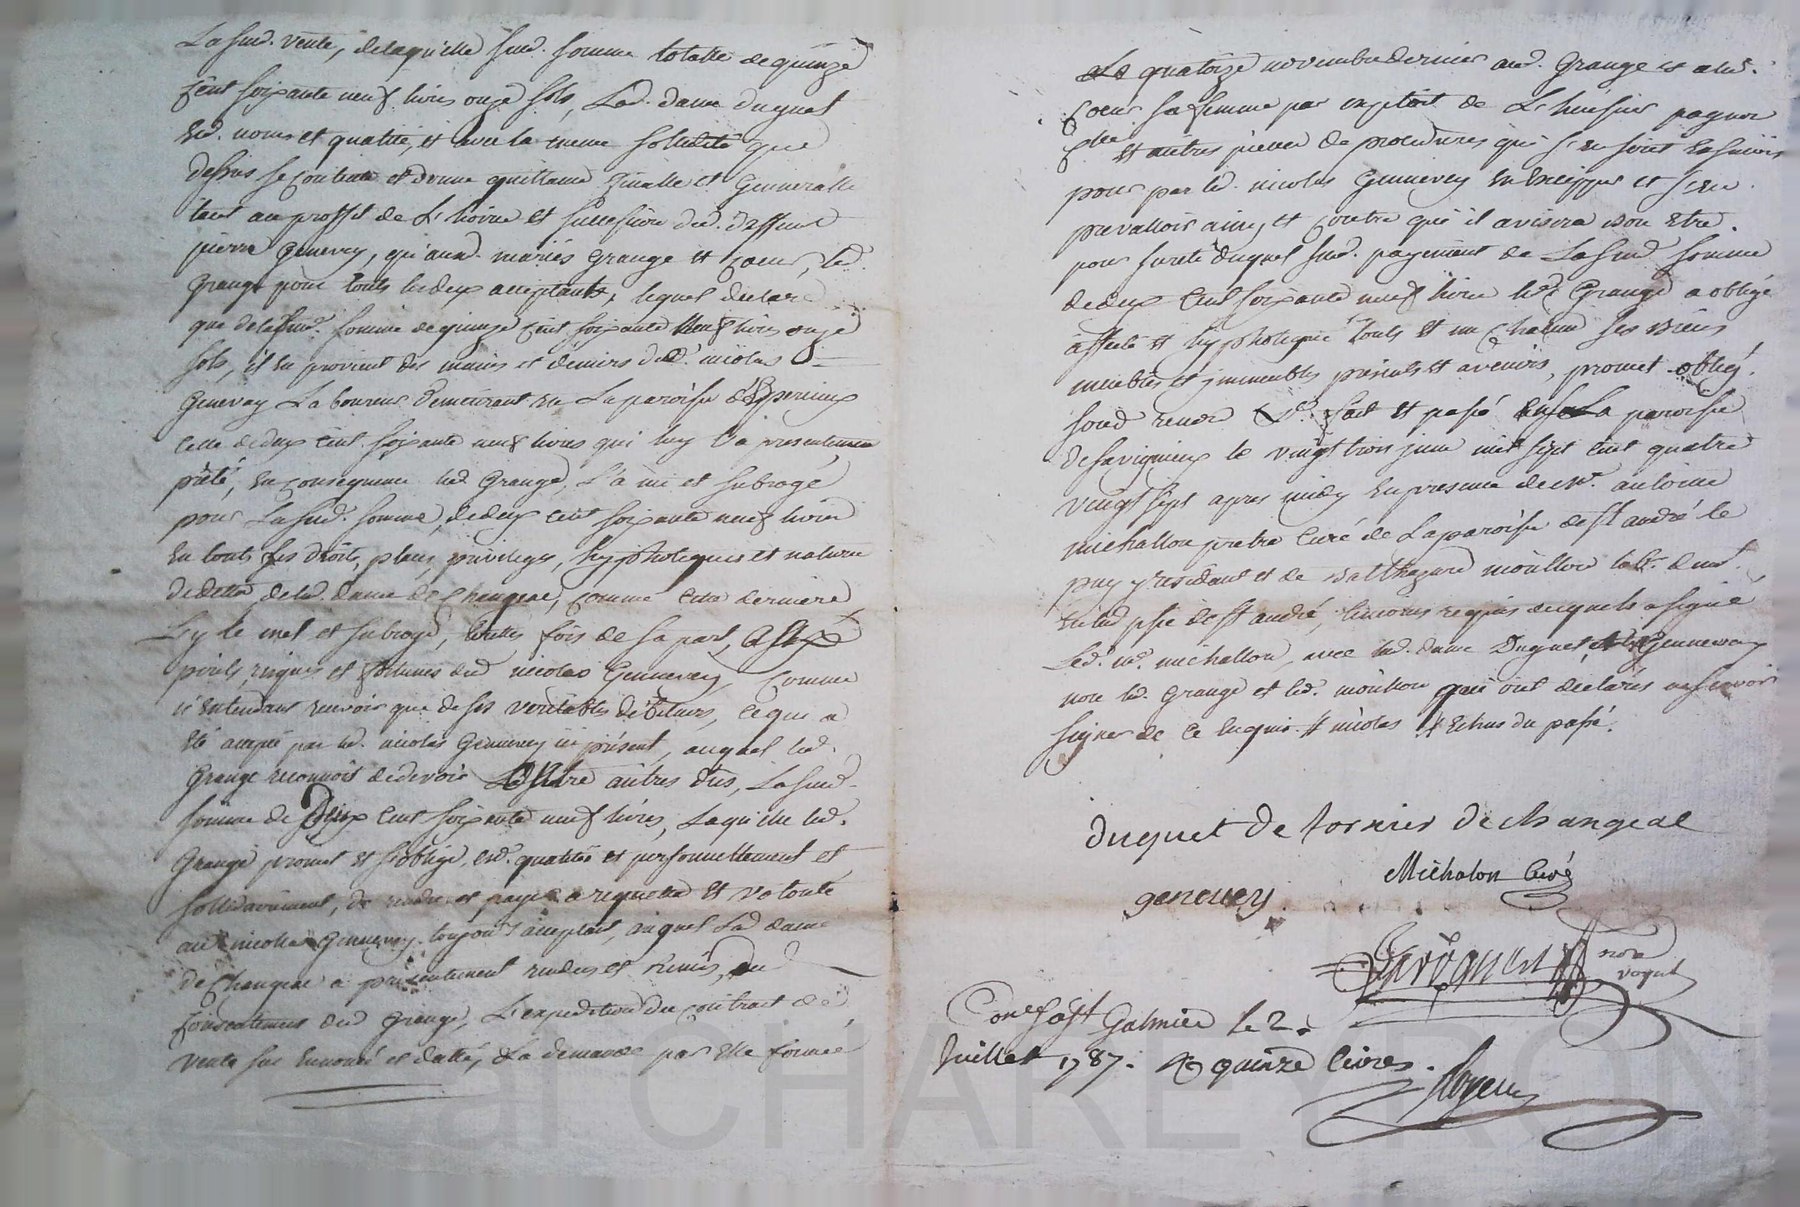 La sud. vente, de laquelle sud. somme totalle de quinze
cent soixante neuf livres onze sols, Lad. dame duguet
end. noms et qualité, et avec la meme solidité que
dessus se contente et donne quittance finalle et generalle
tant au proffit de L'hoirie et succession dud. deffunt
pierre Genevey, qu'aud. mariés Grange et Coeur, led.
Grange pour touts les deux acceptants, lequel declare
que de lasud. somme de quinze cent soixante neuf livres onze
sols, il en provient des mains et deniers dud. nicolas
Genevey Laboureur demeurant en La paroisse
celle de deux cent soixante neuf livres qui luy l'a presentement
preté, en consequence led Grange, L'a mis et subrogé
pour La sud. somme, de deux cent soixante neuf livres
En touts ses droits, place, privileges, hyphoteques et nature
de dette de lad. dame de Changeac, comme cette derniere
L'y le met et subroge, toutes fois de sa part,
perils, risques et fortunes dud nicolas Gennevey, comme
n'entendant recevoir que de ses veritables debiteurs, ce qui a
été accepté par led. nicolas Gennevey ici présent, auquel led.
Grange reconnoit de devoir outre autres dus, La sud.
somme de Deux cent soixante neuf livres, Laquelle led.
Grange promet et s'oblige, esd. qualités et personnellement et
sollidairement, de rendre et payer a requette et volonté
aud nicolas Gennevey toujours acceptant, auquel Lad dame
de Changeac a presentement rendus et remis, du
consentement dud Grange, L'expedition du contract de
vente sus enoncé et datté, & La demande par elle formée
Le quatorze novembre dernier aud. Grange et alad.
Coeur sa femme par exploit de L'huissier pagnon
Et autres pieces de procedures qui s'en sont ensuivis
pour par led. nicolas Gennevey s'en
prevalloir ainsy et contre qui il avisera bon Etre.
pour sureté duquel sud. payement de La sud somme
de deux cent soixante neuf livres led. Grange a obligé
affecté et hyphotequé touts et un chacun ses biens
meubles et immeubles presents et avenirs, promet obligé.
soud renon &c. fait et passé La paroisse
de Savignieux le vingt trois juin mil sept cent quatre
vingt sept apres midy En presence de Mr. antoine
michallon pretre curé de La paroisse de St andré le
puy y residant et de Balthazard moullon lab. demt.
En lad psse de St andré, temoins requis desquels a signé
Led. mr. michallon, avec lad. dame Duguet, Gennevey
non led. Grange et led. moullon qui ont declarés ne scavoir
signer de ce enquis # nicolas # Echus du passé.
duguet de fornier de changeac
Michalon Curé
genevey
Cone. a St Galmier le 2.
Juillet 1787. R quinze livres.